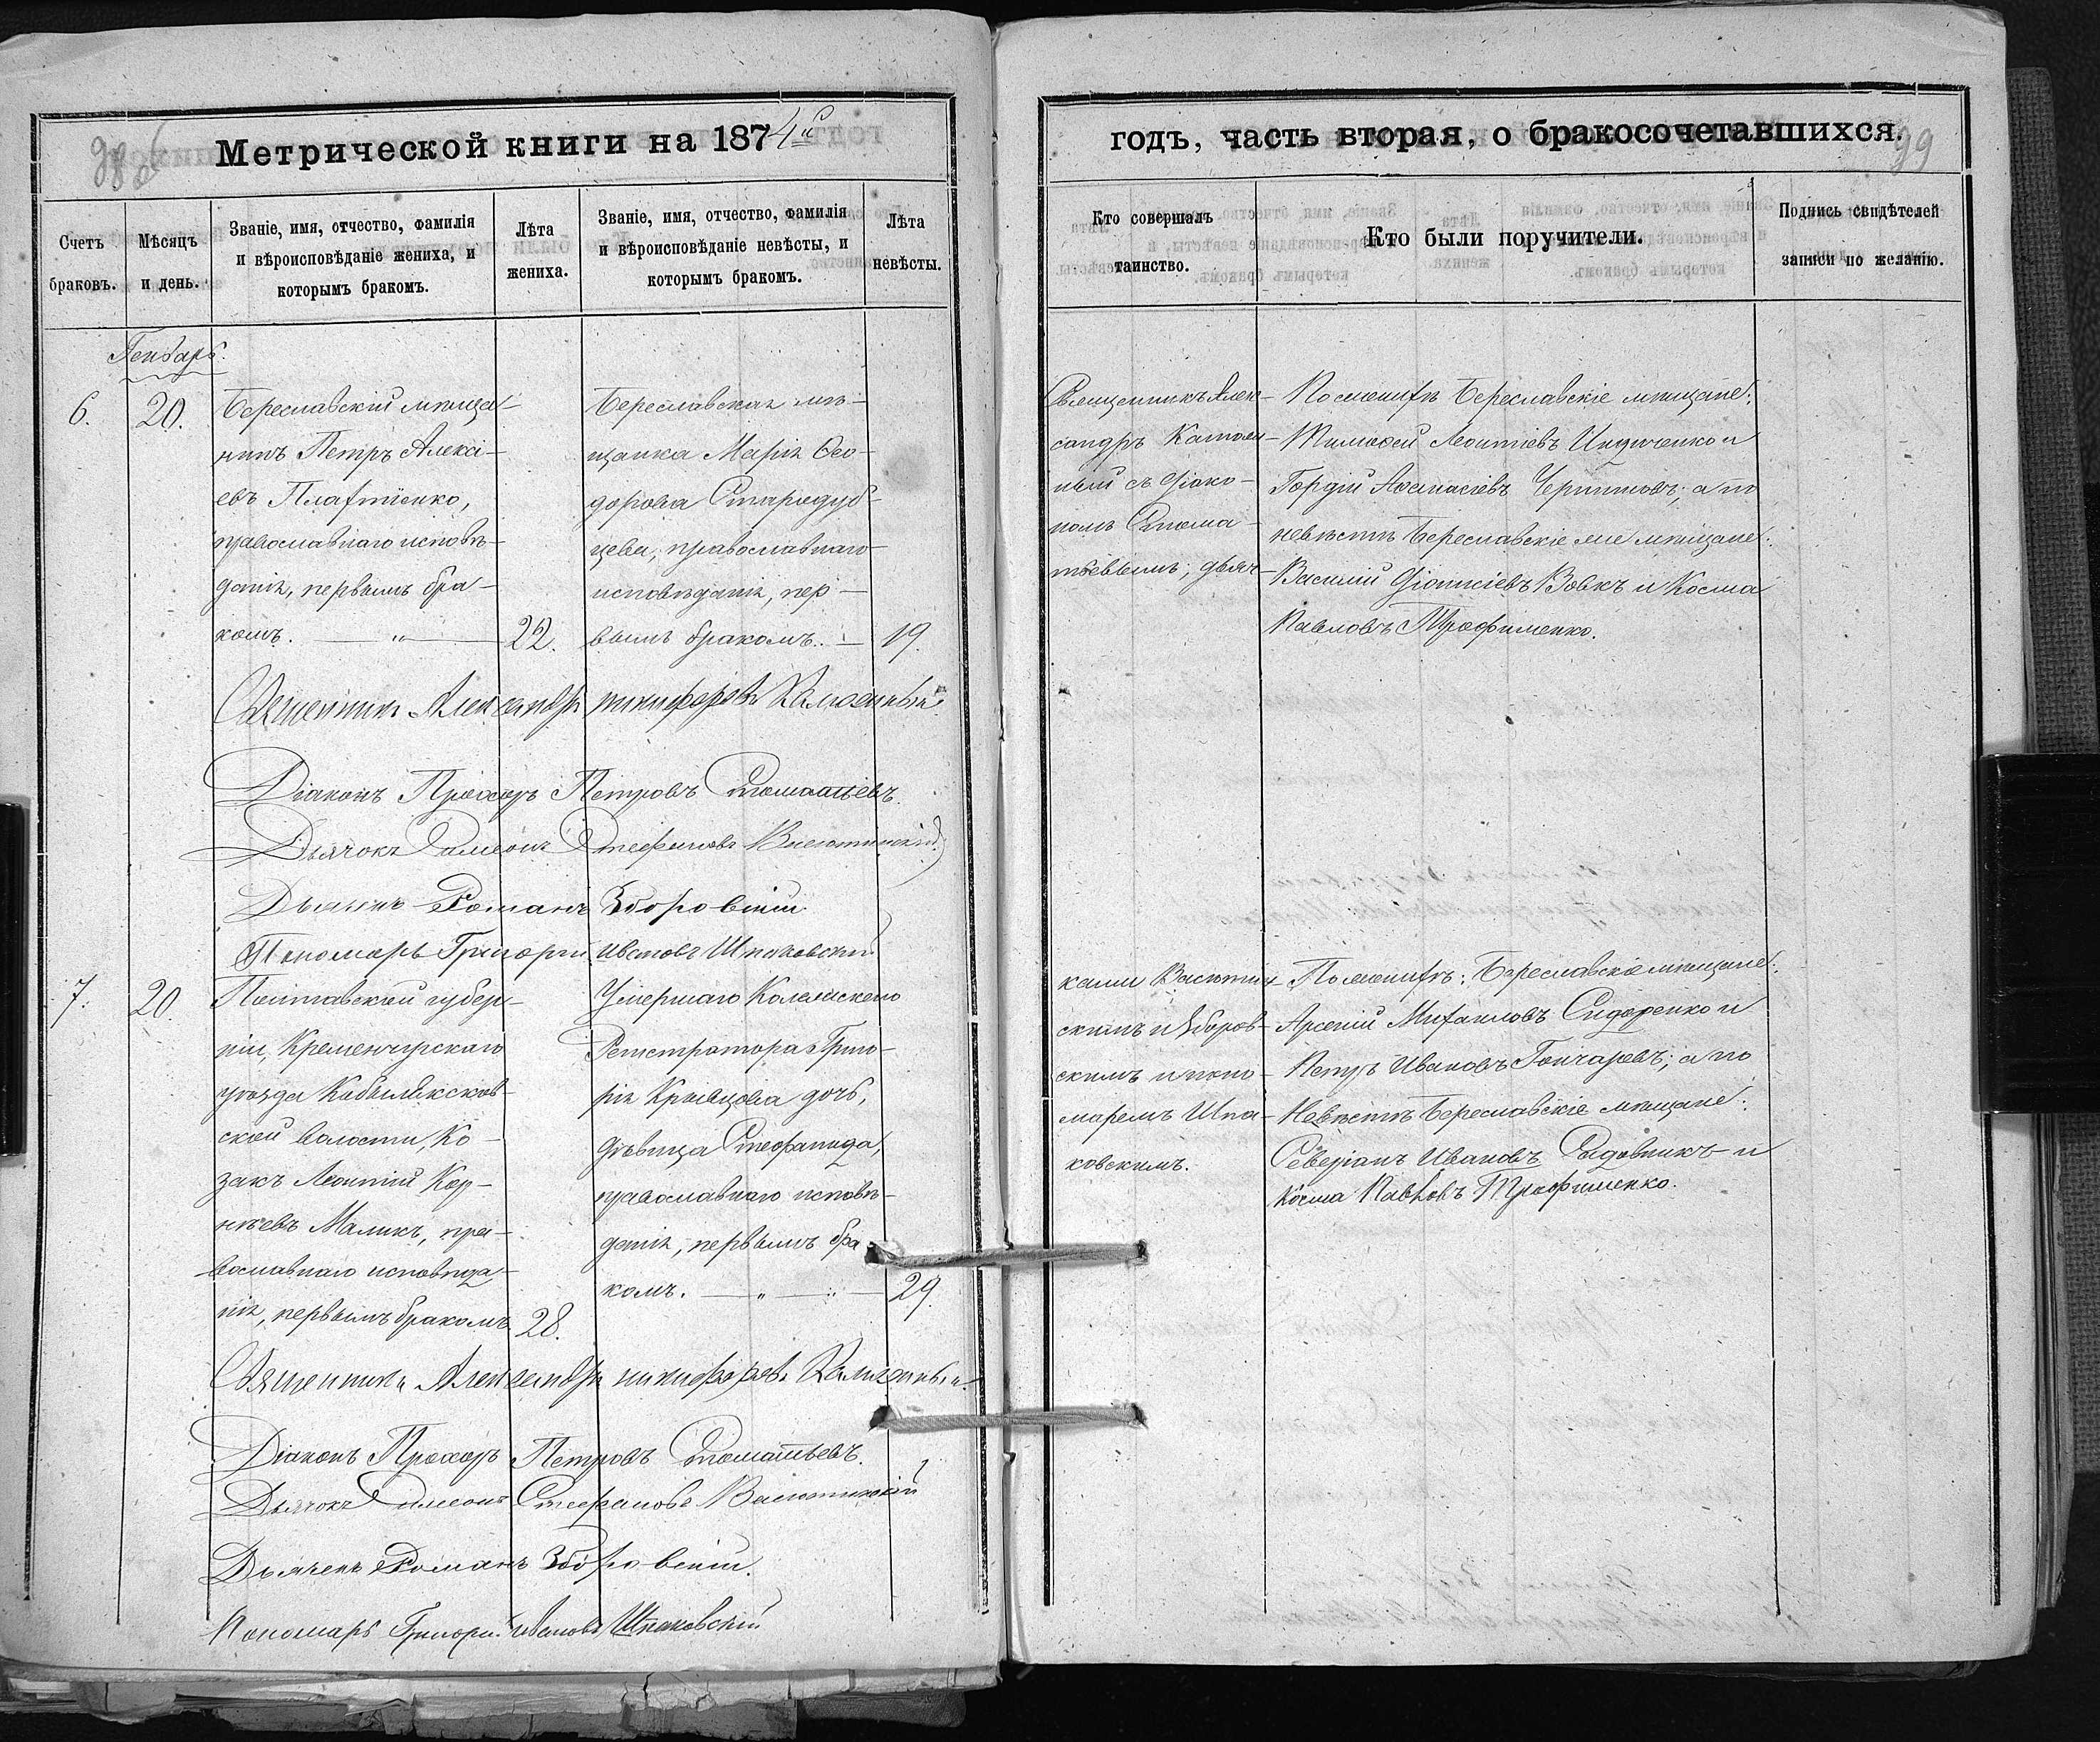 Метрической книги на 1874й
годъ, часть вторая, о бракосочетавшихся.
99
Счетъ
браковъ.
Мѣсяцъ
и день.
Званіе, имя, отчество, фамилія
и вѣроисповѣданіе жениха, и
которымъ бракомъ.
Лѣта
жениха.
Званіе, имя, отчество, фамилія
и вѣроисповѣданіе невѣсты, и
которымъ бракомъ.
Лѣта
невѣсты.
Кто совершалъ
таинство.
Кто были поручители.
Подпись свидѣтелей
записи по желанію.
Генварь.
6.
20.
Береславскій мѣща-
нинъ Петръ Алексі-
евъ Плахтіенко,
православнаго исповѣ-
данія, первымъ бра-
комъ.
22.
Береславская мѣ-
щанка Марія Ѳео-
дорова Стародуб-
цева, православнаго
исповѣданія, пер-
вымъ бракомъ.
19.
Священникъ Алек-
сандръ
съ Діако-
номъ Стома-
тьевымъ, дьяч-
По женихѣ Береславскіе мѣщане:
Тимофей Леонтіевъ Индиченко и
Гордій Аѳанасіевъ а по
невѣстѣ Береславскіе же мѣщане:
Василій Діонисіевъ Вовкъ и Косма
Павловъ Трофименко.
Священникъ Александръ Никифоровъ
Діаконъ Прохоръ Петровъ Стоматьевъ.
Дьячокъ Симеонъ Стефановъ Васютинскій
Дьячекъ Романъ Зборовскій
Пономарь Григорій Ивановъ Шпаковскій
7.
20.
Полтавской губер-
ніи, Кременчугскаго
уѣзда
ской волости, Ко-
закъ Леонтій Кор-
нѣевъ Маликъ, пра-
вославнаго исповѣда-
нія, первымъ бракомъ
28.
Умершаго Колежскаго
Регистратора Григо-
рія Кривцова дочь,
дѣвица Стефанида,
православнаго исповѣ-
данія, первымъ бра-
комъ.
29.
ками Васютин-
скимъ и Зборов-
скимъ и поно-
маремъ Шпа-
ковскимъ.
По женихѣ: Береславскіе мѣщане:
Арсеній Михаиловъ Сидоренко и
Петръ Ивановъ Гончаровъ; а по
Невѣстѣ Береславскіе мѣщане:
Северіанъ Ивановъ Садовникъ и
Косма Павловъ Трофименко.
Священникъ Александръ Никифоровъ
Діаконъ Прохоръ Петровъ Стоматьевъ.
Дьячокъ Симеонъ Стефановъ Васютинскій
Дьячекъ Романъ Зборовскій.
Пономарь Григорій Ивановъ Шпаковскій